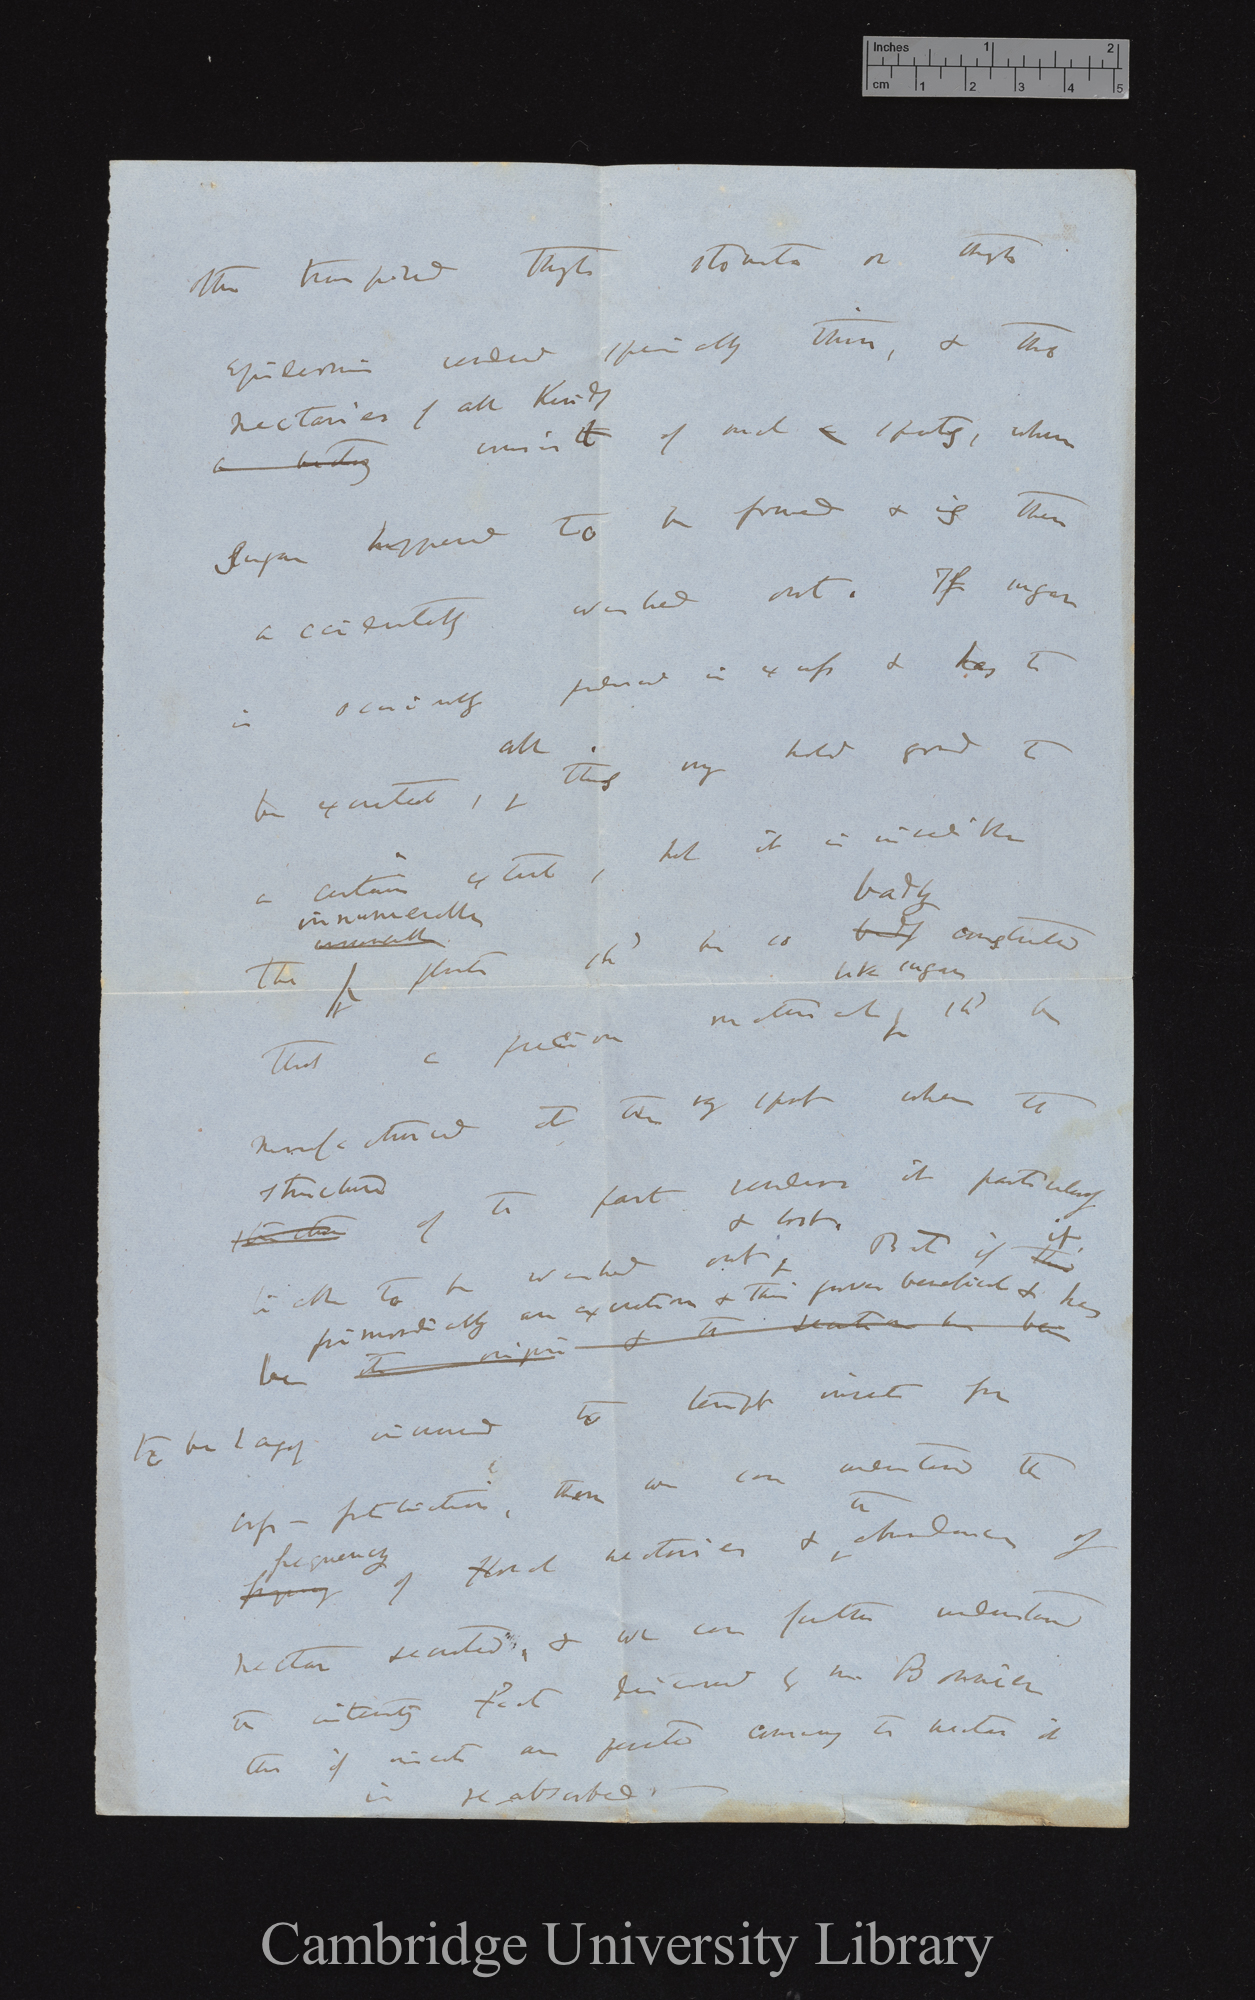 Inches 1 2
cm 1 2 3 4 5
then transpired through stomata or through
epidermis rendered specially thin, & the
nectaries of all Kinds
consist of such spots, where
sugar happened to be formed & is then
accidentally washed out. If sugar
is occasionally produced in excess & has to
all
be excreted, this may hold good to
a certain extent, but it is incredible
innumerable badly
that plants shd be so badly constructed
like sugar
that a precious material shd be
manufactured at the very spot where the
structure
of the part renders it particularly
& lost.
liable to be washed out But if it
primordially an excretion & this proves beneficial & has
been
to be largely increased to tempt insects for
cross-fertilization, then we can understand the
frequency the
of floral nectaries & abundance of
nectar secreted, & we can further understand
the interesting fact discovered by M. Bonnier
that if insects are prevented coming the nectar it
is re absorbed.—
Cambridge University Library